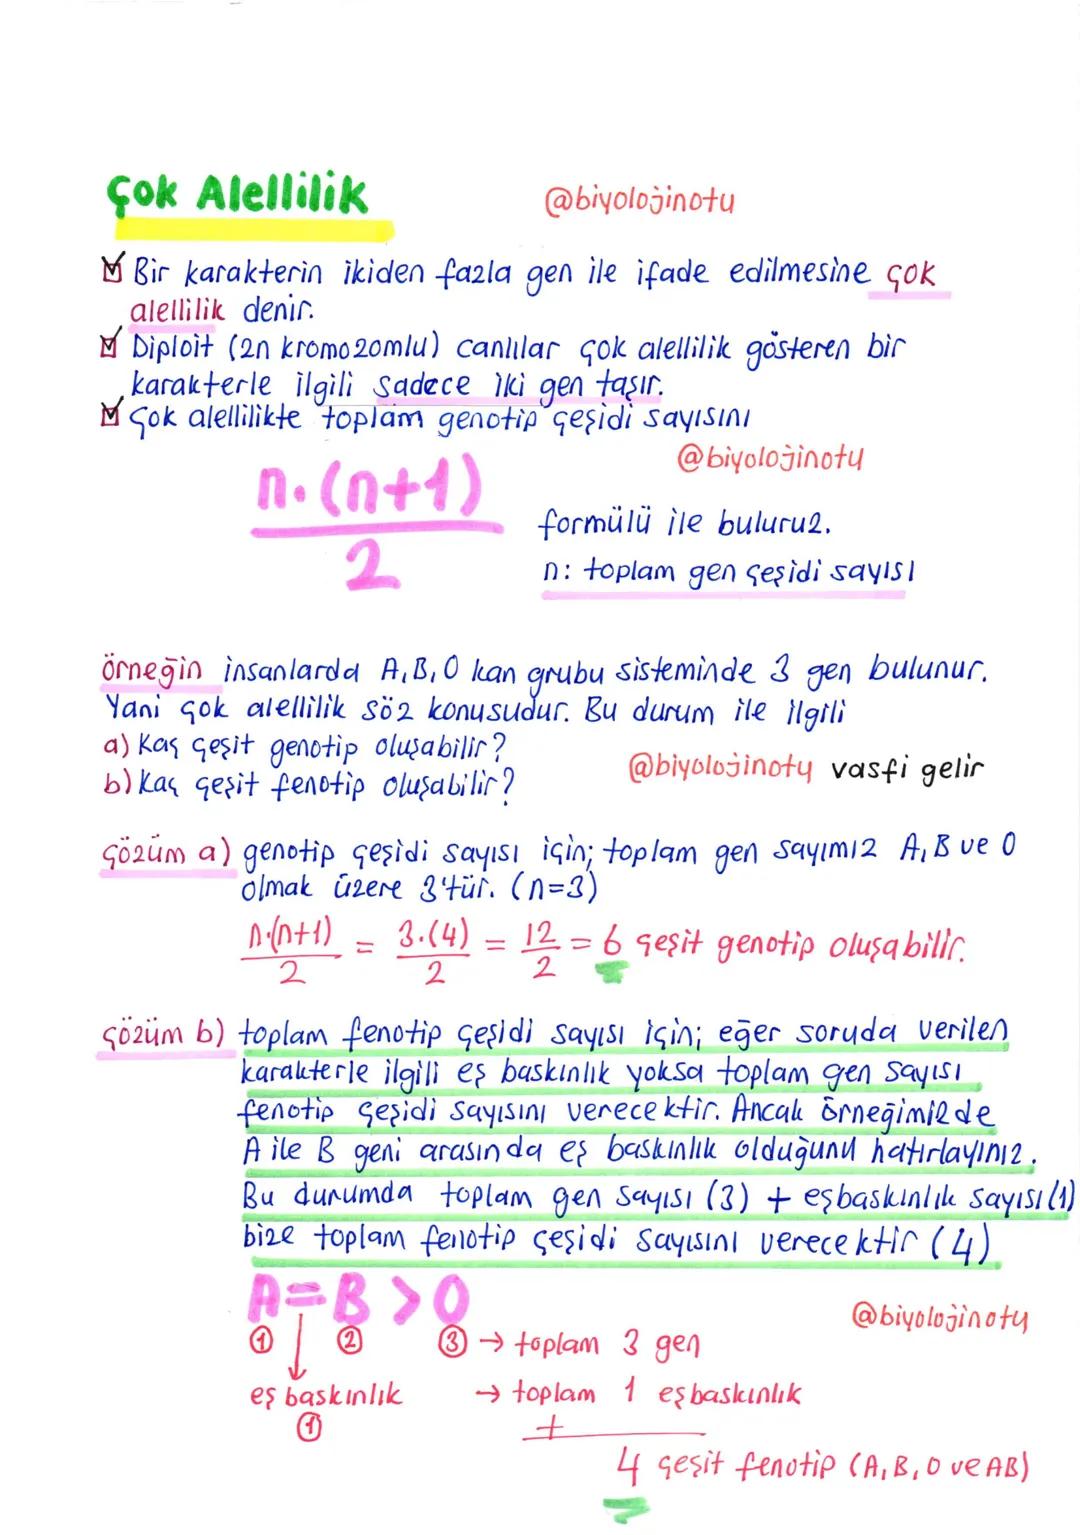 Çok Alellilik
@biyolojinotu
Bir karakterin ikiden fazla gen ile ifade edilmesine çok
alellilik denir.
Diploit (2n kromozomlu) canlılar çok alellilik gösteren bir
karakterle ilgili sadece iki gen taşır.
Çok alellilikte toplam genotip çeşidi sayısını
@biyolojinotu
n.(n+1)
2
formülü ile buluruz.
n: toplam gen çeşidi sayısı
örneğin insanlarda A,B,O kan grubu sisteminde 3 gen bulunur.
Yani çok alellilik söz konusudur. Bu durum ile ilgili
a) Kaç çeşit genotip oluşabilir?
b) Kaç çeşit fenotip oluşabilir?
@biyolojinotu vasfi gelir
çözüm a) genotip çeşidi sayısı için; toplam gen sayımız A,B ve O
olmak üzere 3'tür. (n=3)
n.(n+1)/2 = 3.(4)/2 = 12/2 = 6 çeşit genotip oluşabilir.
çözüm b) toplam fenotip çeşidi sayısı için; eğer soruda verilen
karakterle ilgili eş baskınlık yoksa toplam gen sayısı
fenotip çeşidi sayısını verecektir. Ancak örneğimizde
A ile B geni arasında eş baskınlık olduğunu hatırlayınız.
Bu durumda toplam gen sayısı (3) + eşbaskınlık sayısı (1)
bize toplam fenotip çeşidi sayısını verecektir (4)
A=B>O
@biyolojinotu
① ② ③ → toplam 3 gen
eş baskınlık → toplam 1 eşbaskınlık
① +
4 çeşit fenotip (A,B,O ve AB)